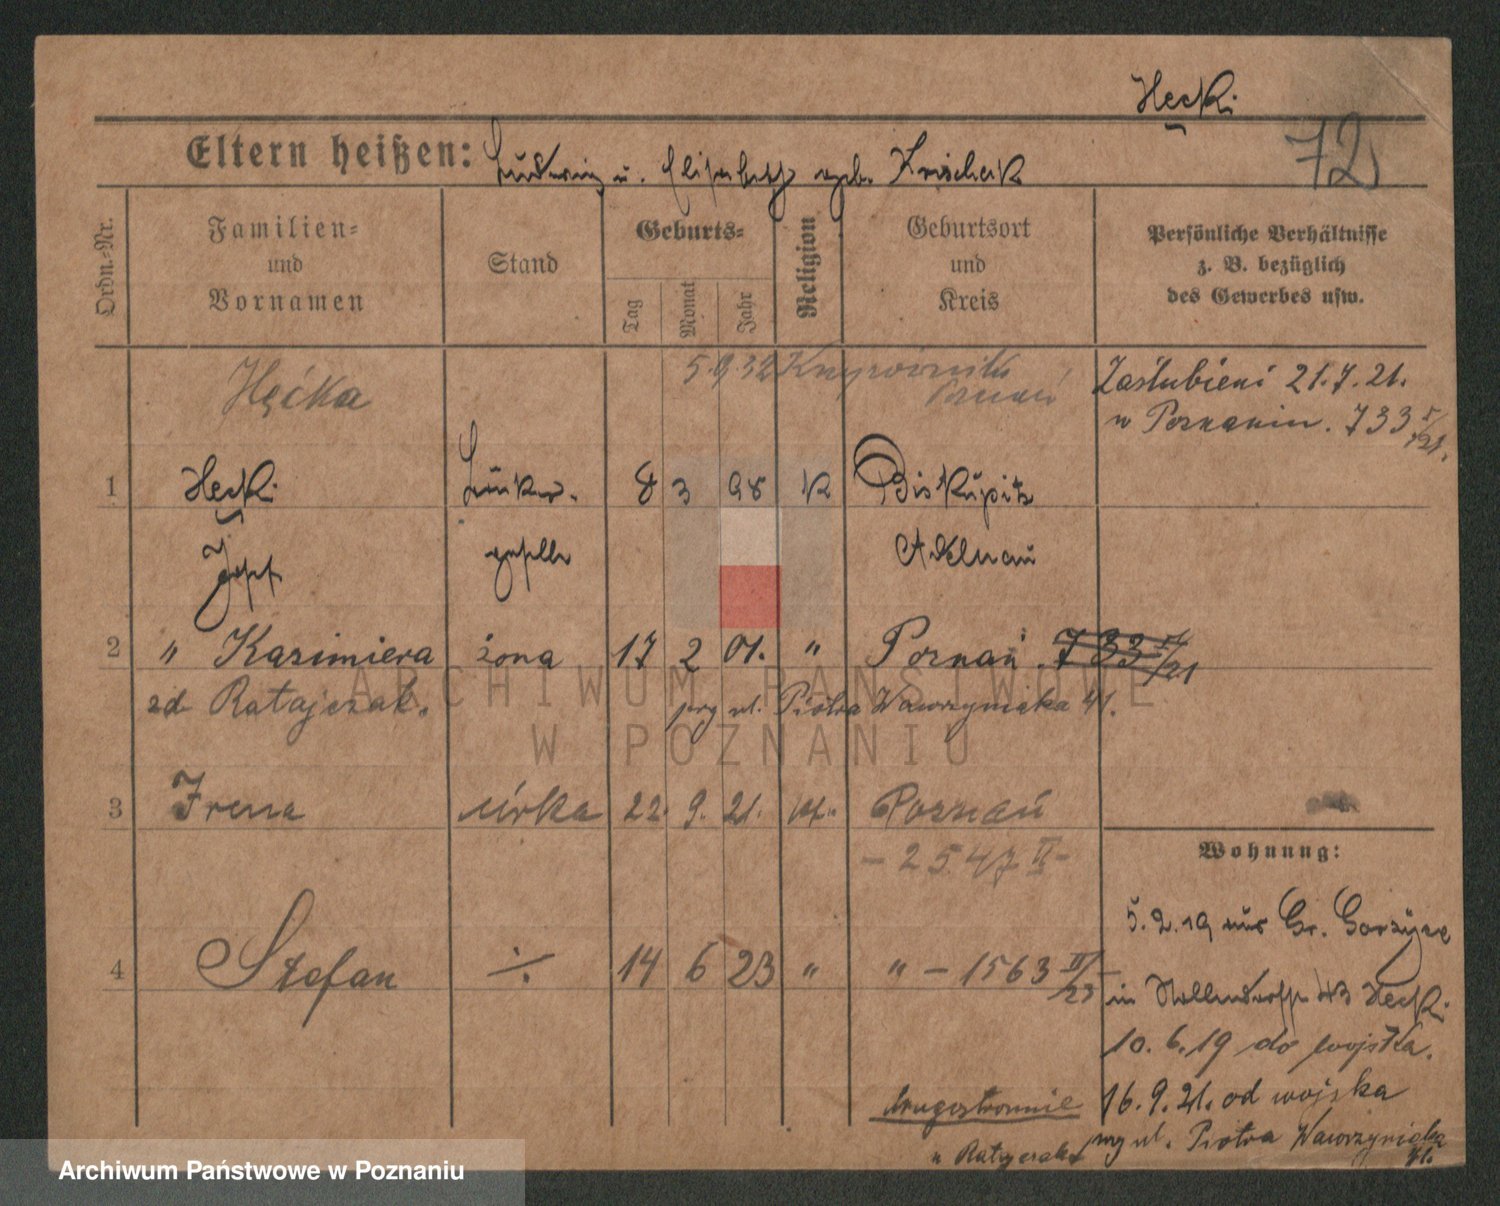 Hecki
72
Eltern heißen: Ludwig u. Elisabeth geb. Krischak
Ordn.-Nr.
Familien- und Vornamen
Stand
Geburts-
Tag
Monat
Jahr
Religion
Geburtsort und Kreis
Persönliche Verhältnisse z. B. bezüglich des Gewerbes usw.
Hęćka
5.9.32
Poznań
Zaślubieni 21.7.21.
w Poznaniu. 733 /21.
1 Hecki 8 3 98 K Biskupitz
Josef geselle Adelnau
2 " Kazimiera żona 17 2 01. " Poznań. 733 /21
zd Ratajczak.
przy ul. Piotra Wawrzyniaka 41.
3 Irena córka 22. 9. 21. kat. Poznań
- 2547 II -
Wohnung:
5.2.19 aus Gr. Gorzyce
4 Stefan ·/. 14 6 23 " " - 1563 III/23
in 43 Hecki
10.6.19 do wojska.
drugostronnie
16.9.21. od wojska
przy ul. Piotra Wawrzyniaka 41.
u Ratajczak
ARCHIWUM PAŃSTWOWE
W POZNANIU
Archiwum Państwowe w Poznaniu